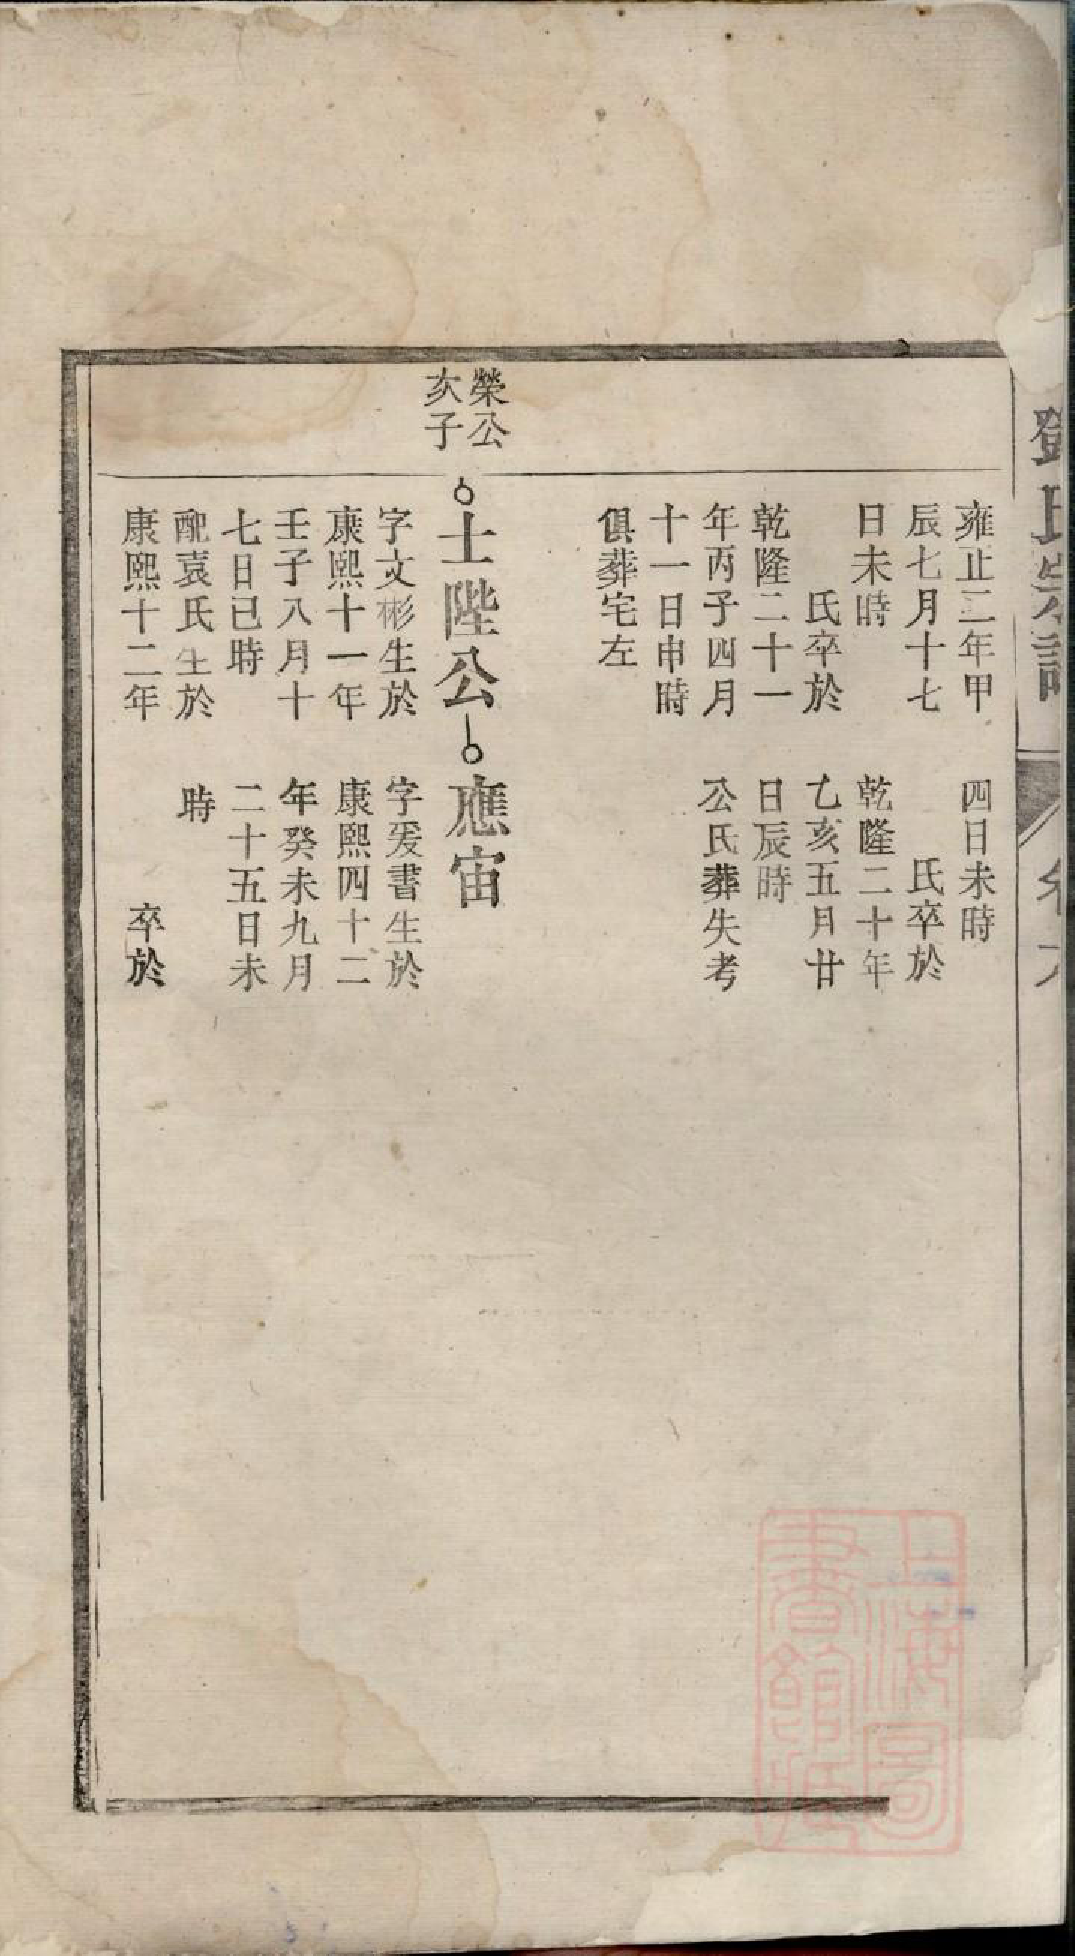 鄧氏宗譜
雍正二年甲
辰七月十七
日未時
氏卒於
乾隆二十一
年丙子四月
十一日申時
俱葬宅左
四日未時
氏卒於
乾隆二十年
乙亥五月廿
日辰時
公氏葬失考
榮公
次子
士陛公
字文彬生於
康熙十一年
壬子八月十
七日已時
配袁氏生於
康熙十二年
應宙
字爰書生於
康熙四十二
年癸未九月
二十五日未
時
卒於
上海圖
書館藏